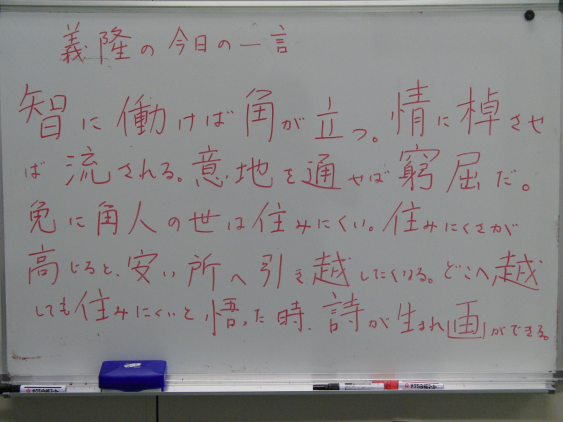 義隆の今日の一言
智に働けば角が立つ。情に棹させ
ば流される。意地を通せば窮屈だ。
兎に角人の世は住みにくい。住みにくさが
高じると、安い所へ引き越したくなる。どこへ越
しても住みにくいと悟った時、詩が生まれ画ができる。